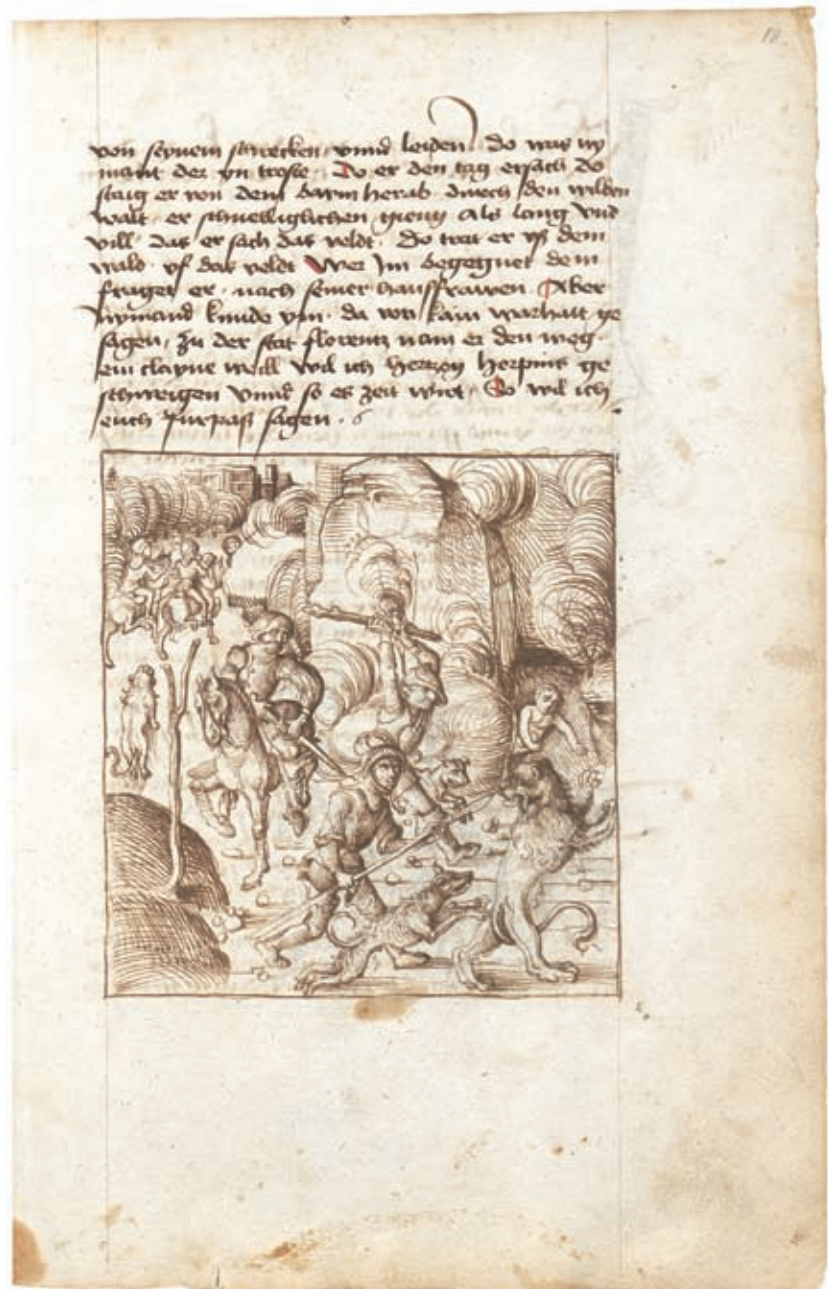 von seynem schrecken vnnd leiden do was ny
mant der yn troste Do er den tag ersach do
staig er von dem bawm herab durch den wilden
walt er schnelliglichen gieng Als lang vnd
vill das er sach das veldt Do trat er vß dem
wald vf das veldt Wer Im begegnet dem
fraget er nach seiner haussfrawen Aber
nymand kunde ym da von kain warhait ge
sagen zu der stat florentz nam er den weg
ein clayne weill wil ich hertzog herpins ge
schweigen vnnd so es zeit wirt So wil ich
euch furpaß sagen